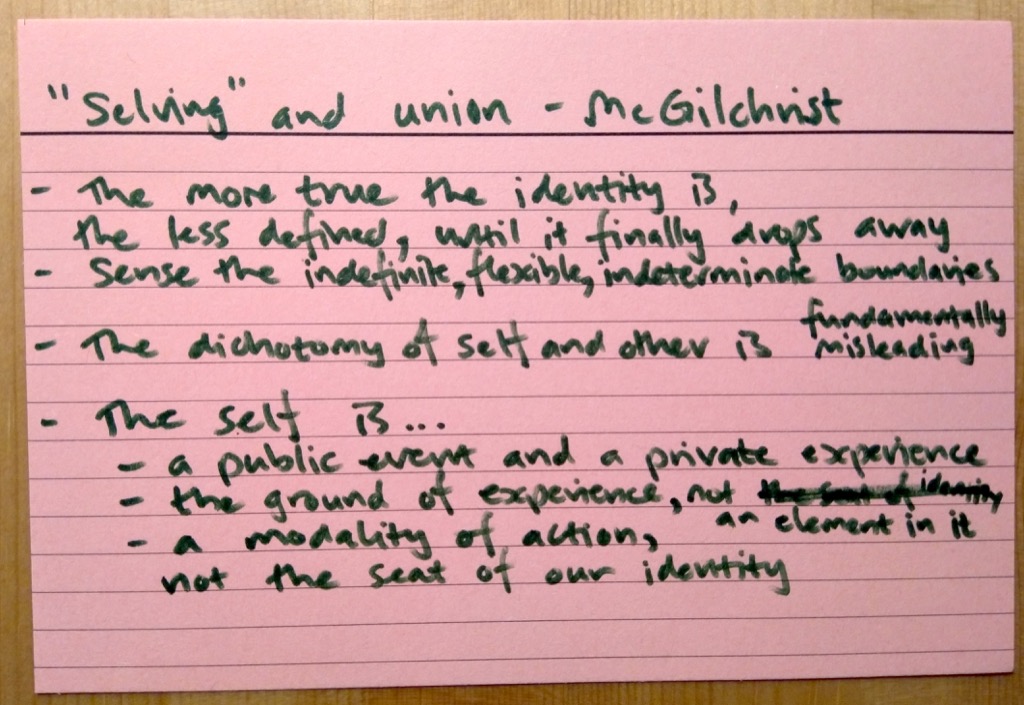 "Selving" and union - McGilchrist
- The more true the identity is,
the less defined, until it finally drops away
- Sense the indefinite, flexible, indeterminate boundaries
- The dichotomy of self and other is fundamentally misleading
- The self is...
- a public event and a private experience
- the ground of experience, not the seat of identity an element in it
- a modality of action,
not the seat of our identity